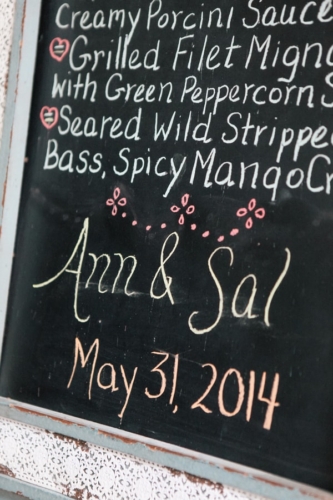 Creamy Porcini Sauce
Grilled Filet Mign
with Green Peppercorn S
Seared Wild Strippe
Bass, Spicy Mango Cr
Ann & Sal
May 31, 2014